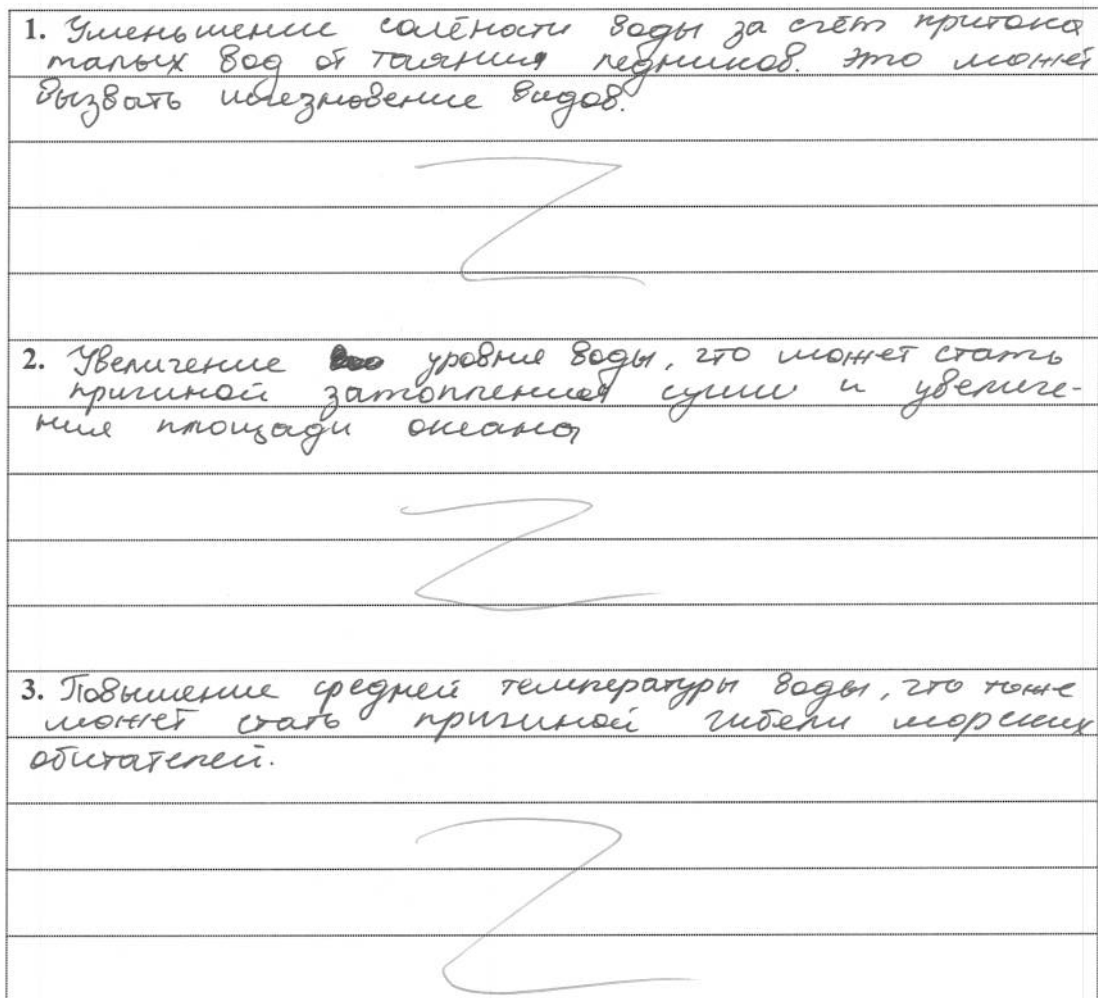 1. Уменьшение солёности воды за счёт притока
талых вод от таяния ледников. Это может
вызвать исчезновение видов.
2. Увеличение уровня воды, что может стать
причиной затопления суши и увеличе-
ния площади океана
3. Повышение средней температуры воды, что тоже
может стать причиной гибели морских
обитателей.